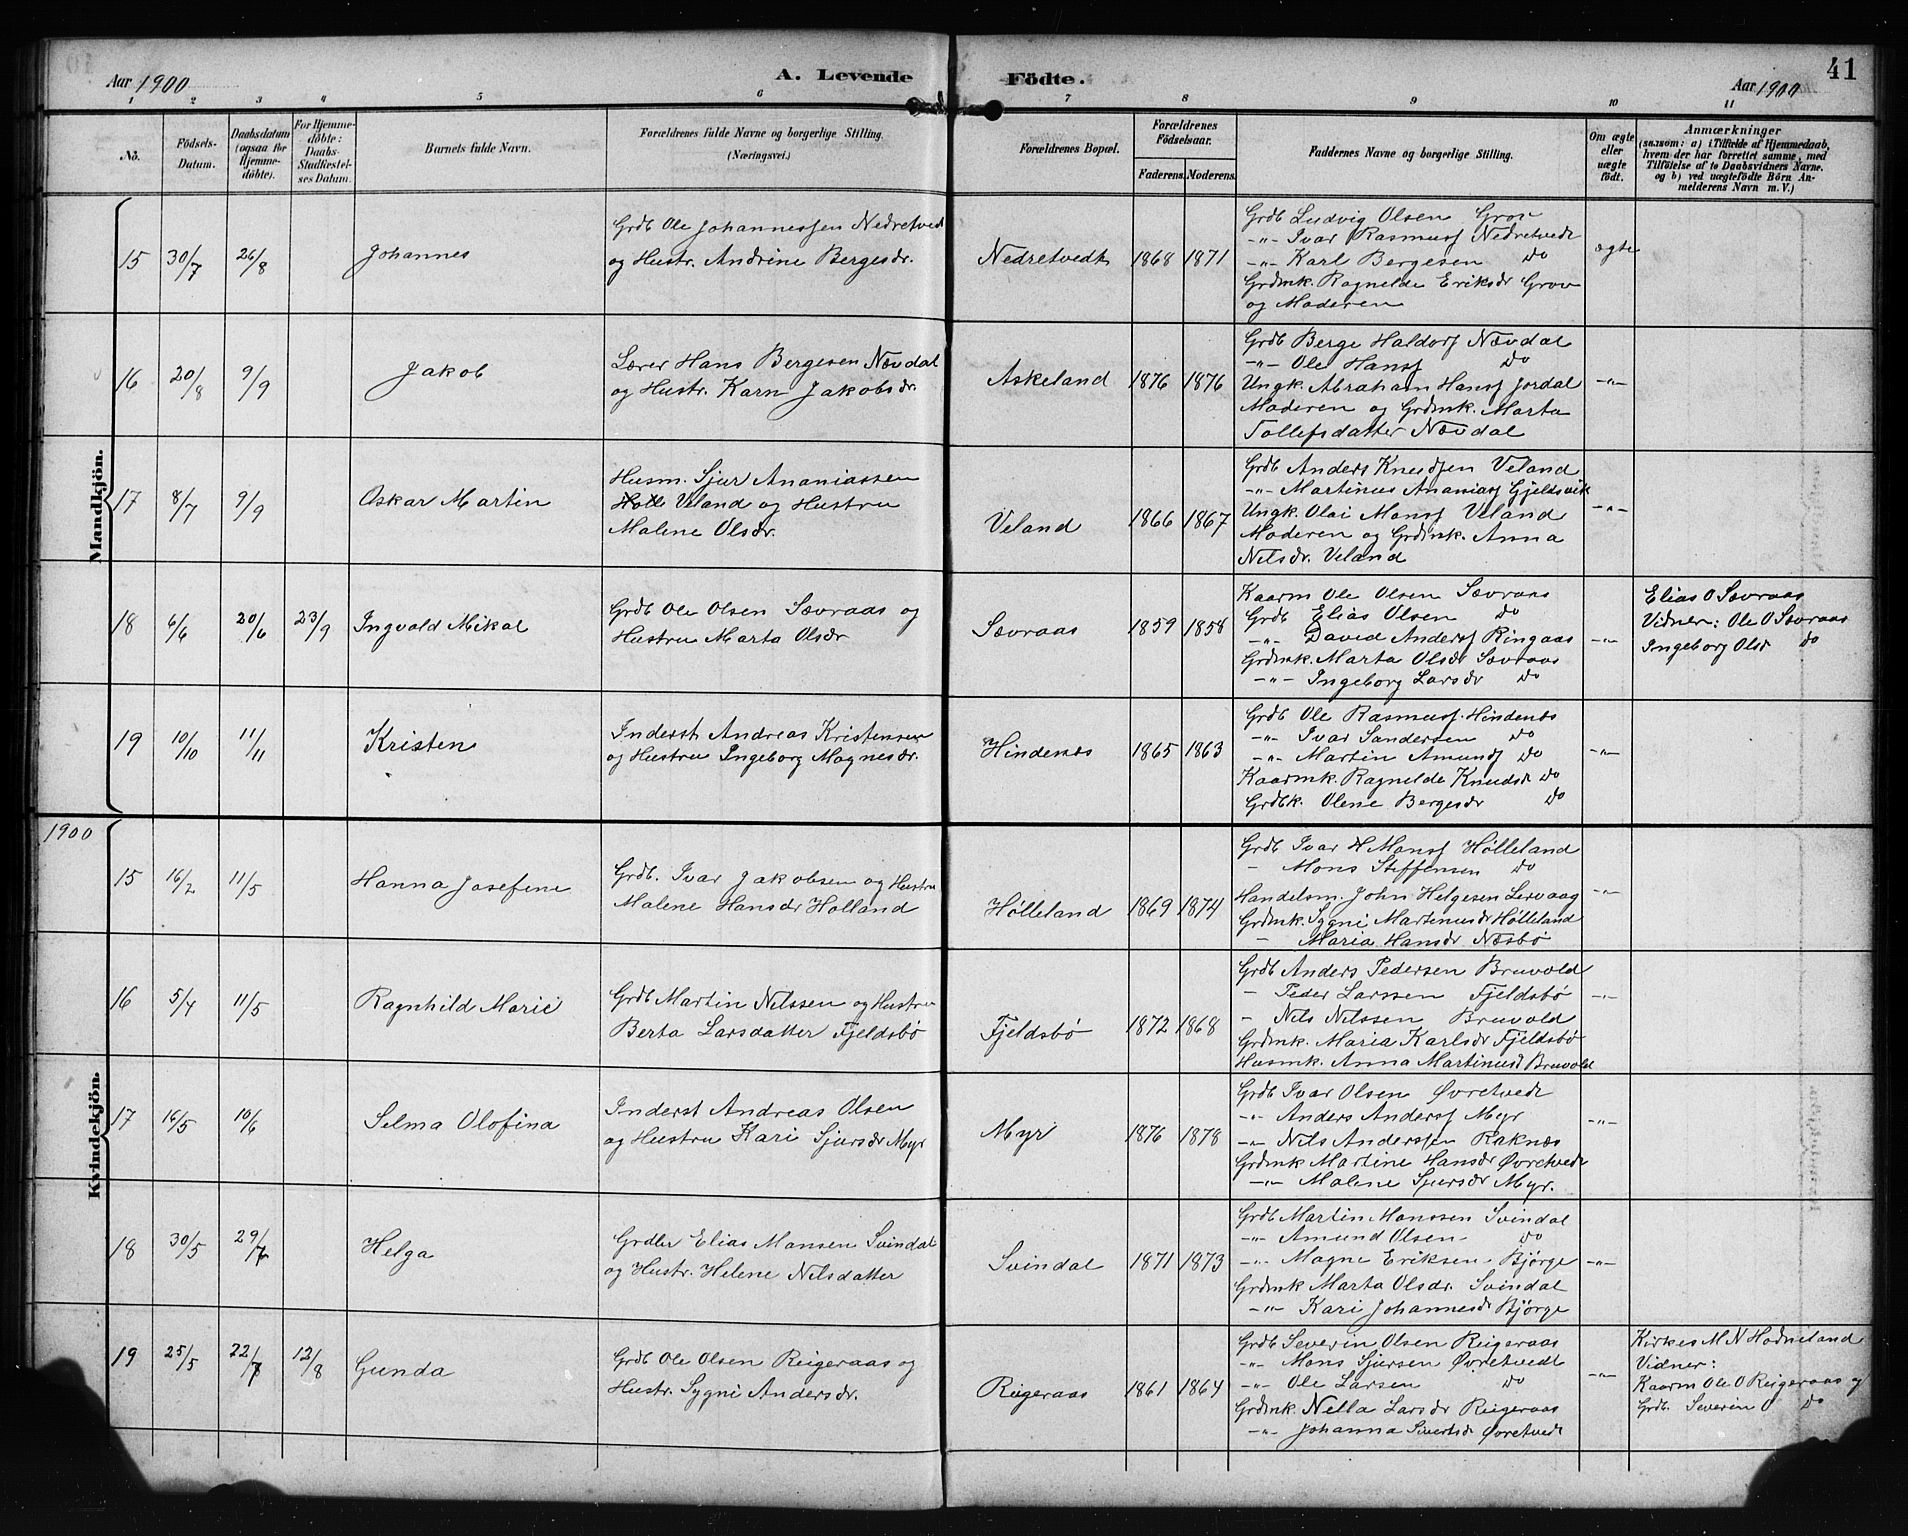 41
Aar 1900 A. Levende Födte. Aar 1900
1 2 3 4 5 6 7 8 9 10 11
No.
Födsels-
Datum.
Daabsdatum
(ogsaa for
Hjemme-
döbte).
For Hjemme-
döbte:
Daabs-
Stadfæstel-
ses Datum.
Barnets fulde Navn.
Forældrenes fulde Navne og borgerlige Stilling.
(Næringsvei.)
Forældrenes Bopæl.
Forældrenes
Födselsaar.
Faderens. Moderens.
Faddernes Navne og borgerlige Stilling.
Om ægte
eller
uægte
födt.
Anmærkninger
(saasom: a) i Tilfælde af Hjemmedaab,
hvem der har forrettet samme, med
Tilföielse af to Daabsvidners Navne.
og b) ved uægtefödte Börn An-
melderens Navn m. V.)
Mandkjön.
15 30/7 26/8 Johannes
Grdb Ole Johannessen Nedretvedt
og Hustr. Andrine Bergesdr.
Nedretvedt 1868 1871
Grdb Ludvig Olsen Grov
-"- Ivar Rasmuss Nedretvedt
-"- Karl Bergesen do
Grdmk. Ragnelde Eriksdr Grov
og Moderen
ægte
16 20/8 9/9 Jakob
Lærer Hans Bergesen Nævdal
og Hustr. Karn Jakobsdr.
Askeland 1876 1876
Grdb Berge Haldorss Nævdal
-"- Ole Hanss do
Ungk. Abraham Hanss Jordal
Moderen og Grdmk. Marta
Tollefsdatter Nævdal
-"-
17 8/7 9/9 Oskar Martin
Husm. Sjur Ananiassen
Veland og Hustru
Malene Olsdr.
Veland 1866 1867
Grdb Anders Knudsen Veland
-"- Martinus Ananiass Gjeldsvik
Ungk. Olai Monss Veland
Moderen og Grdmk. Anna
Nilsdr. Veland
-"-
18 6/6 20/6 23/9 Ingvald Mikal
Grdb Ole Olsen Sævraas og
Hustru Marta Olsdr
Sævraas 1859 1858
Kaarm Ole Olsen Sævraas
Grdb Elias Olsen do
-"- David Anderss Ringaas
Grdmk. Marta Olsdr Sævraas
-"- Ingeborg Larsdr do
-"-
Elias O Sævraas
Vidner: Ole O Sævraas
Ingeborg Olsd do
19 10/10 11/11 Kristen
Inderst Andreas Kristensen
og Hustru Ingeborg Magnesdr.
Hindenes 1865 1863
Grdb Ole Rasmuss. Hindenæs
-"- Ivar Sandersen do
-"- Martin Amunds do
Kaarmk. Ragnelde Knudsd do
Grdbk. Olene Bergesdr do
-"-
1900
Kvindekjön.
15 16/2 11/5 Hanna Josefine
Grdb. Ivar Jakobsen og Hustru
Malene Hansdr Holland
Hölleland 1869 1874
Grdb Ivar H Monss Hölleland
- Mons Steffensen do
Handelsm. John Helgesen Leivaag
Grdmk. Sygni Martinusdr Hölleland
- Maria Hansdr Næsbö
-"-
16 5/4 11/5 Ragnhild Marie
Grdb Martin Nilssen og Hustru
Berta Larsdatter Fjeldsbö
Fjeldsbö 1872 1868
Grdb Anders Pedersen Bruvold
- Peder Larssen Fjeldsbö
- Nils Nilssen Bruvold
Grdmk. Maria Karlsdr Fjeldsbö
Husmk. Anna Martinusd Bruvold
-"-
17 16/5 10/6 Selma Olofina
Inderst Andreas Olsen
og Hustru Kari Sjursdr Myr
Myr 1876 1878
Grdb Ivar Olsen Øvretvedt
-"- Anders Anderss Myr
-"- Nils Anderssen Raknæs
Grdmk Martine Hansdr Øvretvedt
-"- Malene Sjursdr Myr.
-"-
18 30/5 29/7 Helga
Grdbr Elias Monsen Svindal
og Hustr. Helene Nilsdatter
Svindal 1871 1873
Grdb Martin Monssen Svindal
-"- Amund Olsen- do
-"- Magne Eriksen- Bjørge
Grdmk Marta Olsdr. Svindal
-"- Kari Johannesd Bjørge
-"-
19 25/5 22/7 12/8 Gunda
Grdb Ole Olsen Reigeraas og
Hustr. Sygni Andersdr.
Reigeraas 1861 1864
Grdb Severin Olsen Reigeraas
-"- Mons Sjursen Øvretvedt
-"- Ole Larsen do
Grdmk. Nella Larsdr Reigeraas
-"- Johanna Sivertsd Øvretvedt
-"-
Kirkes M N Hodneland
Vidner:
Kaarm Ole O Reigeraas og
Grdb. Severin O do